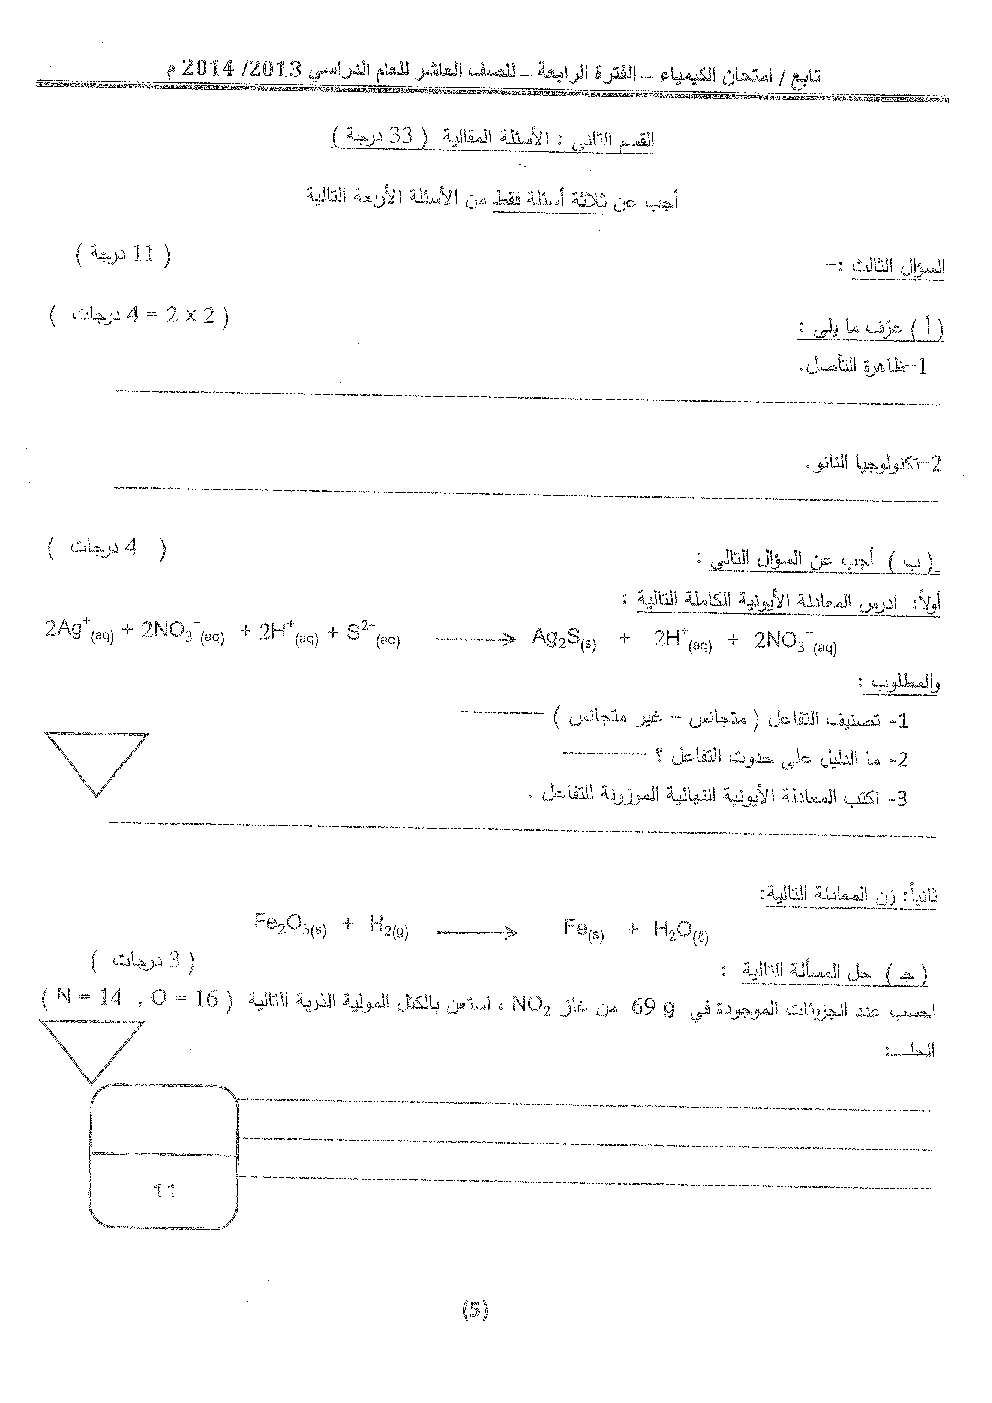 تابع / امتحان الكيمياء – الفترة الرابعة – للصف العاشر للعام الدراسي 2013/ 2014 م
القسم الثاني : الأسئلة المقالية ( 33 درجة )
أجب عن ثلاثة أسئلة فقط من الأسئلة الأربعة التالية
السؤال الثالث :- ( 11 درجة )
( أ ) عرّف ما يلي : ( 2 x 2 = 4 درجات )
1-ظاهرة التآصل.
2-تكنولوجيا النانو.
( ب ) أجب عن السؤال التالي : ( 4 درجات )
أولاً: ادرس المعادلة الأيونية الكاملة التالية :
2Ag⁺(aq) + 2NO₃⁻(aq) + 2H⁺(aq) + S²⁻(aq) ⟶ Ag₂S(s) + 2H⁺(aq) + 2NO₃⁻(aq)
والمطلوب :
1- تصنيف التفاعل ( متجانس – غير متجانس )
2- ما الدليل على حدوث التفاعل ؟
3- اكتب المعادلة الأيونية النهائية الموزونة للتفاعل .
ثانياً: زن المعادلة التالية:
Fe₂O₃(s) + H₂(g) ⟶ Fe(s) + H₂O(ℓ)
( جـ ) حل المسألة التالية : ( 3 درجات )
احسب عدد الجزيئات الموجودة في 69 g من غاز NO₂ ، استعن بالكتل المولية الذرية التالية ( N = 14 , O = 16 )
الحلــ:
11
(5)